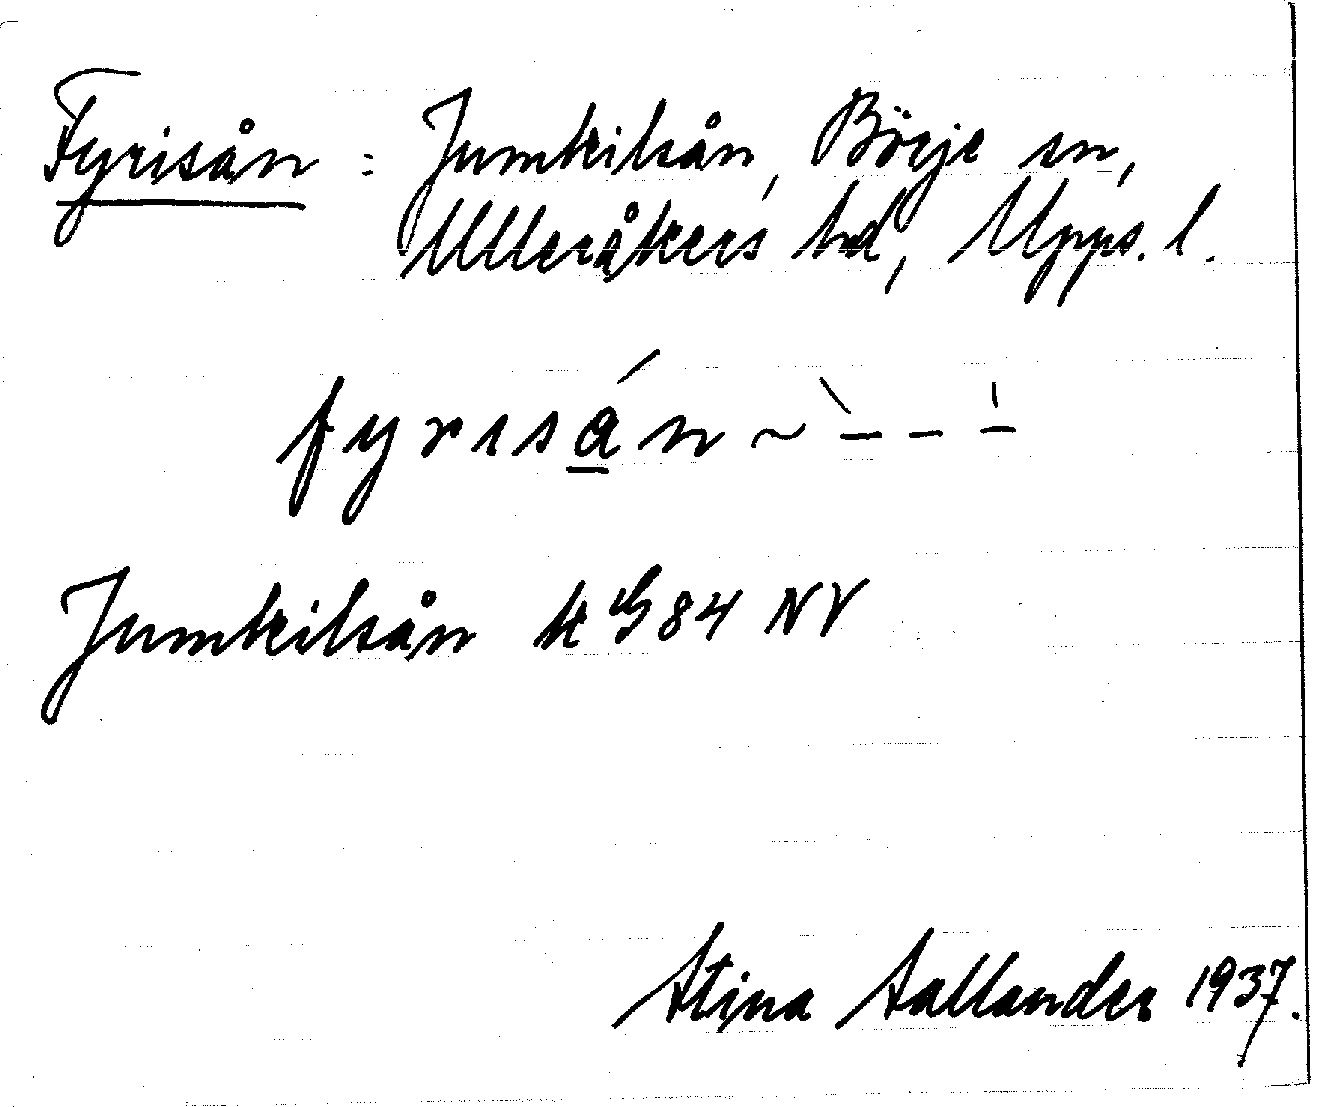 Fyrisån = Jumkilsån, Börje sn,
Ulleråkers hd, Upps. l.
fyrisá̲n ~ `– – –̍
Jumkilsån k G 84 NV
Stina Sallander 1937.